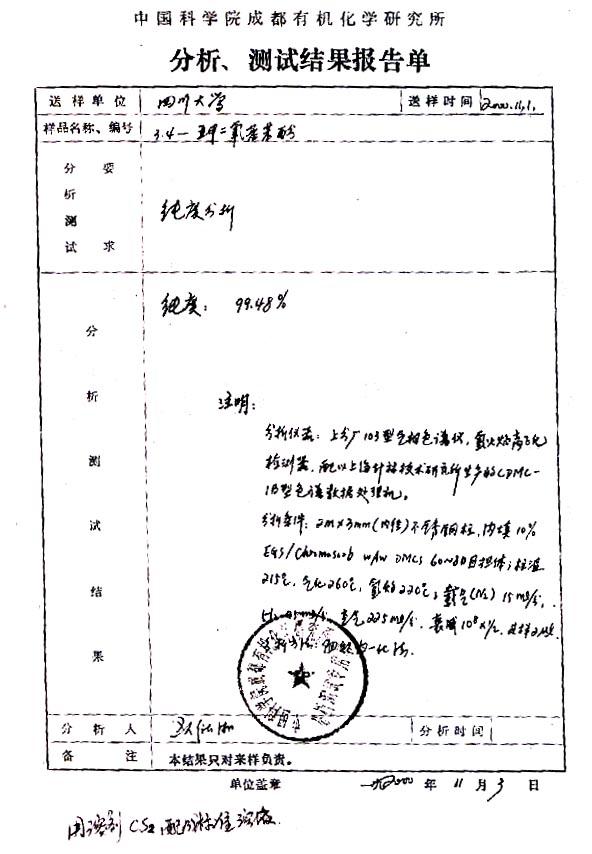 中国科学院成都有机化学研究所
分析、测试结果报告单
送样单位 四川大学 送样时间 2000.11.1.
样品名称、编号 3.4-亚甲二氧基苯酚
分析测试要求 纯度分析
分析测试结果
纯度: 99.48%
注明:
分析仪器: 上分厂103型气相色谱仪, 氢火焰离子化
检测器, 配以上海计算技术研究所生产的CDMC-
1B型色谱数据处理机。
分析条件: 2m×3mm(内径)不锈钢柱, 内填10%
EGS/Chromosorb WAW DMCS 60~80目担体; 柱温
215℃, 气化260℃, 氢焰220℃; 氮气(N₂) 15ml/
H₂ 空气225ml/ 衰减 进样
分析方法: 归一化法
分析人 分析时间
备注 本结果只对来样负责。
单位盖章 2000年11月3日
用溶剂CS₂配成标准溶液